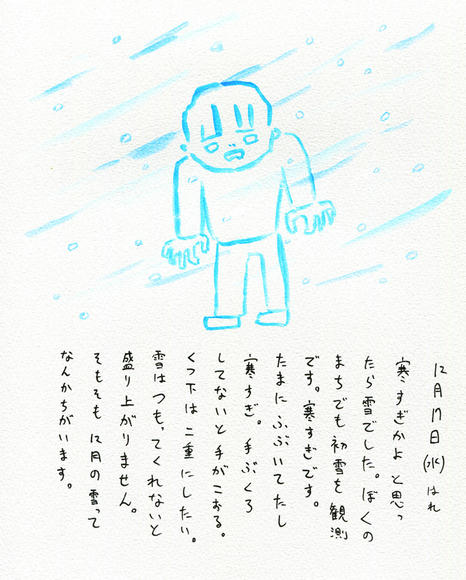 12月17日(水)はれ
寒すぎかよと思っ
たら雪でした。ぼくの
まちでも初雪を観測
です。寒すぎです。
たまにふぶいてたし
寒すぎ。手ぶくろ
してないと手がこおる。
くつ下は二重にしたい。
雪はつもってくれないと
盛り上がりません。
そもそも12月の雪って
なんかちがいます。